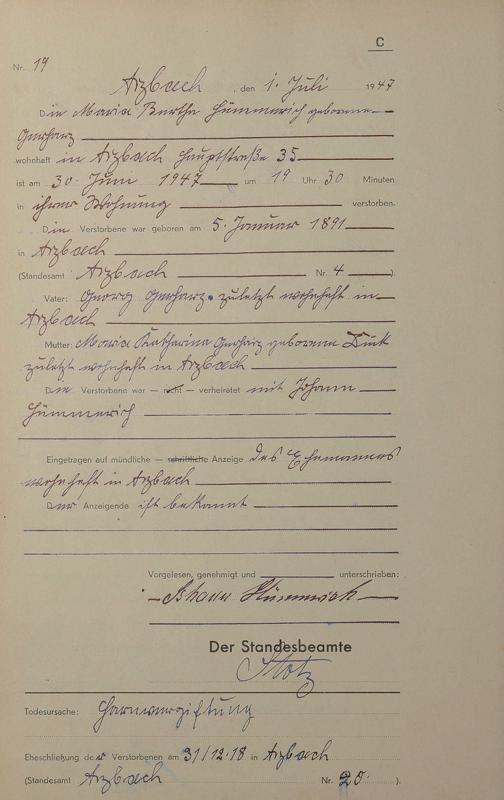 C
Nr. 19
Arzbach, den 1. Juli 1947
Die Maria Bertha Hümmerich geborene
Gerharz
wohnhaft in Arzbach Hauptstraße 35
ist am 30. Juni 1947 um 19 Uhr 30 Minuten
in ihrer Wohnung verstorben.
Die Verstorbene war geboren am 5. Januar 1891
in Arzbach
(Standesamt Arzbach Nr. 4 ).
Vater: Georg Gerharz, zuletzt wohnhaft in
Arzbach
Mutter: Maria Katharina Gerharz geborene
zuletzt wohnhaft in Arzbach
Die Verstorbene war — nicht — verheiratet mit Johann
Hümmerich
Eingetragen auf mündliche — schriftliche Anzeige des Ehemannes
wohnhaft in Arzbach
Der Anzeigende ist bekannt
Vorgelesen, genehmigt und unterschrieben:
Johann Hümmerich
Der Standesbeamte
Todesursache: Harnvergiftung
Eheschließung der Verstorbenen am 31/12.18 in Arzbach
(Standesamt Arzbach Nr. 20 ).